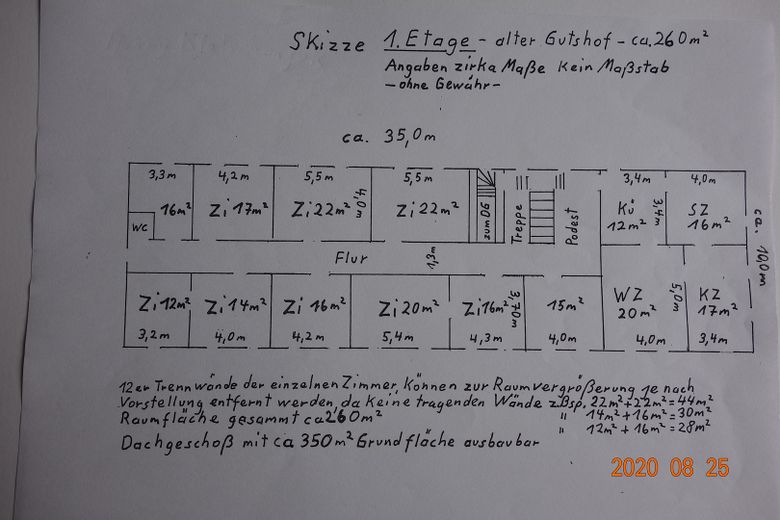 Skizze 1. Etage - alter Gutshof - ca. 260 m²
Angaben zirka Maße kein Maßstab
- ohne Gewähr -
ca. 35,0 m
3,3 m 4,2 m 5,5 m 5,5 m 3,4 m 4,0 m
16 m² Zi 17 m² Zi 22 m² 4,0 m Zi 22 m² zum DG Treppe Podest Kü 3,4 m SZ
12 m² 16 m²
WC
ca. 10,0 m
Flur 1,3 m
Zi 12 m² Zi 14 m² Zi 16 m² Zi 20 m² Zi 16 m² 3,70 m 15 m² WZ 5,0 m KZ
20 m² 17 m²
3,2 m 4,0 m 4,2 m 5,4 m 4,3 m 4,0 m 4,0 m 3,4 m
12er Trennwände der einzelnen Zimmer, können zur Raumvergrößerung je nach
Vorstellung entfernt werden, da keine tragenden Wände z.Bsp. 22 m² + 22 m² = 44 m²
Raumfläche gesammt ca 260 m² " 14 m² + 16 m² = 30 m²
" 12 m² + 16 m² = 28 m²
Dachgeschoß mit ca 350 m² Grundfläche ausbaubar
2020 08 25